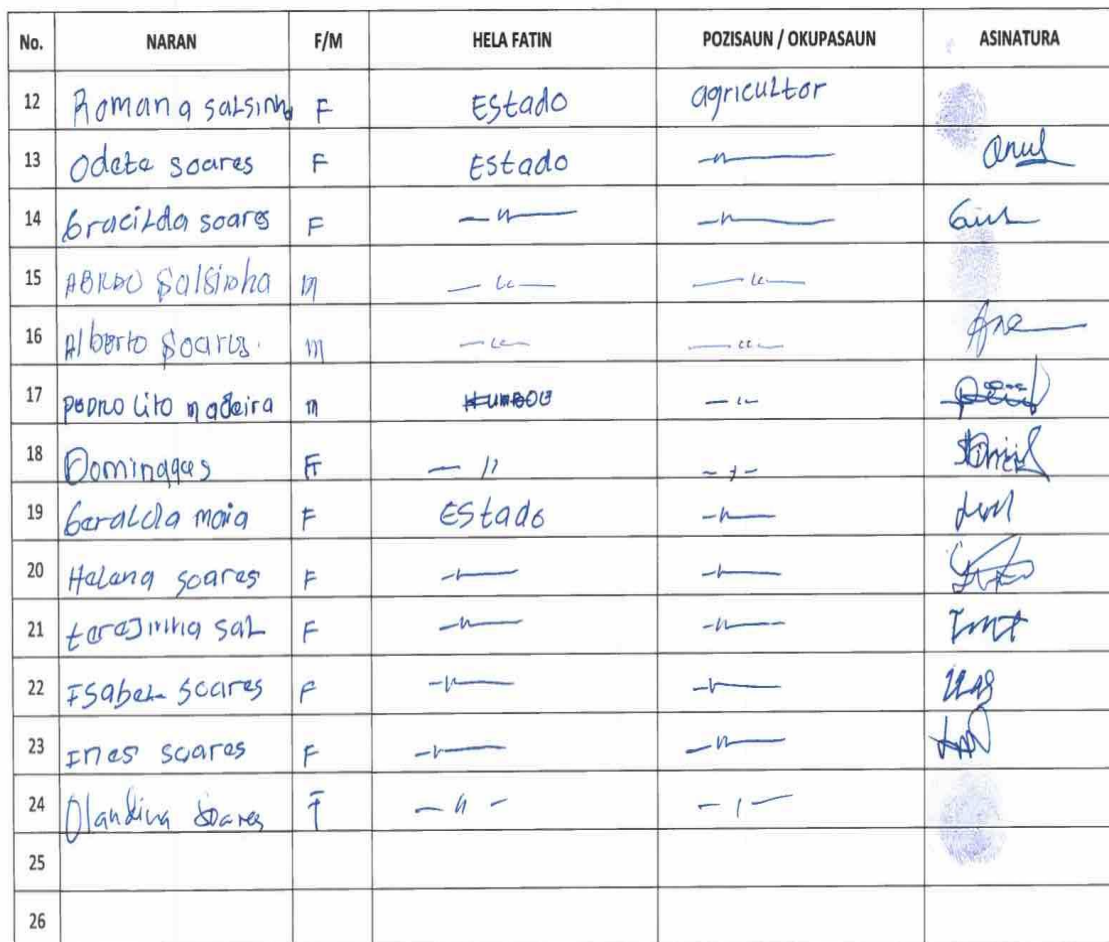 No. NARAN F/M HELA FATIN POZISAUN / OKUPASAUN ASINATURA
12 Romana salsinha F Estado agricultor
13 Odete soares F Estado —〃—
14 Gracilda soares F —〃— —〃—
15 Salsinha m —〃— —〃—
16 Alberto Soares. m —〃— —〃—
17 Pedro Lito madeira m —〃—
18 Domingas F —〃 —〃—
19 Geralda maia F Estado —〃—
20 Helena soares F —〃— —〃—
21 terezinha sal F —〃— —〃—
22 Isabel soares F —〃— —〃—
23 Ines soares F —〃— —〃—
24 Olandina Soares F —〃— —〃—
25
26